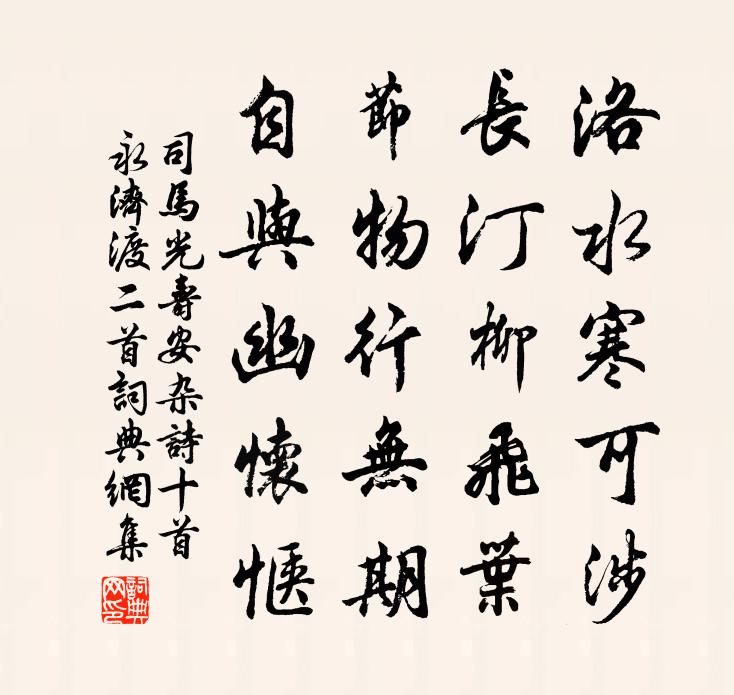 洛水寒可涉
長汀柳飛葉
節物行無期
自與幽懷愜
司馬光壽安杂詩十首
永濟渡二首詞典網集
詞典網印